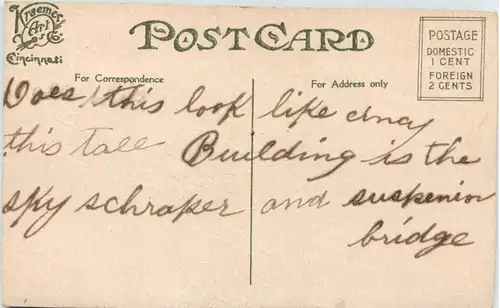 Kraemer Art Co.
Cincinnati
POST CARD
POSTAGE
DOMESTIC
1 CENT
FOREIGN
2 CENTS
For Correspondence
For Address only
Does this look like
this tall Building is the
sky schraper and suspenion
bridge